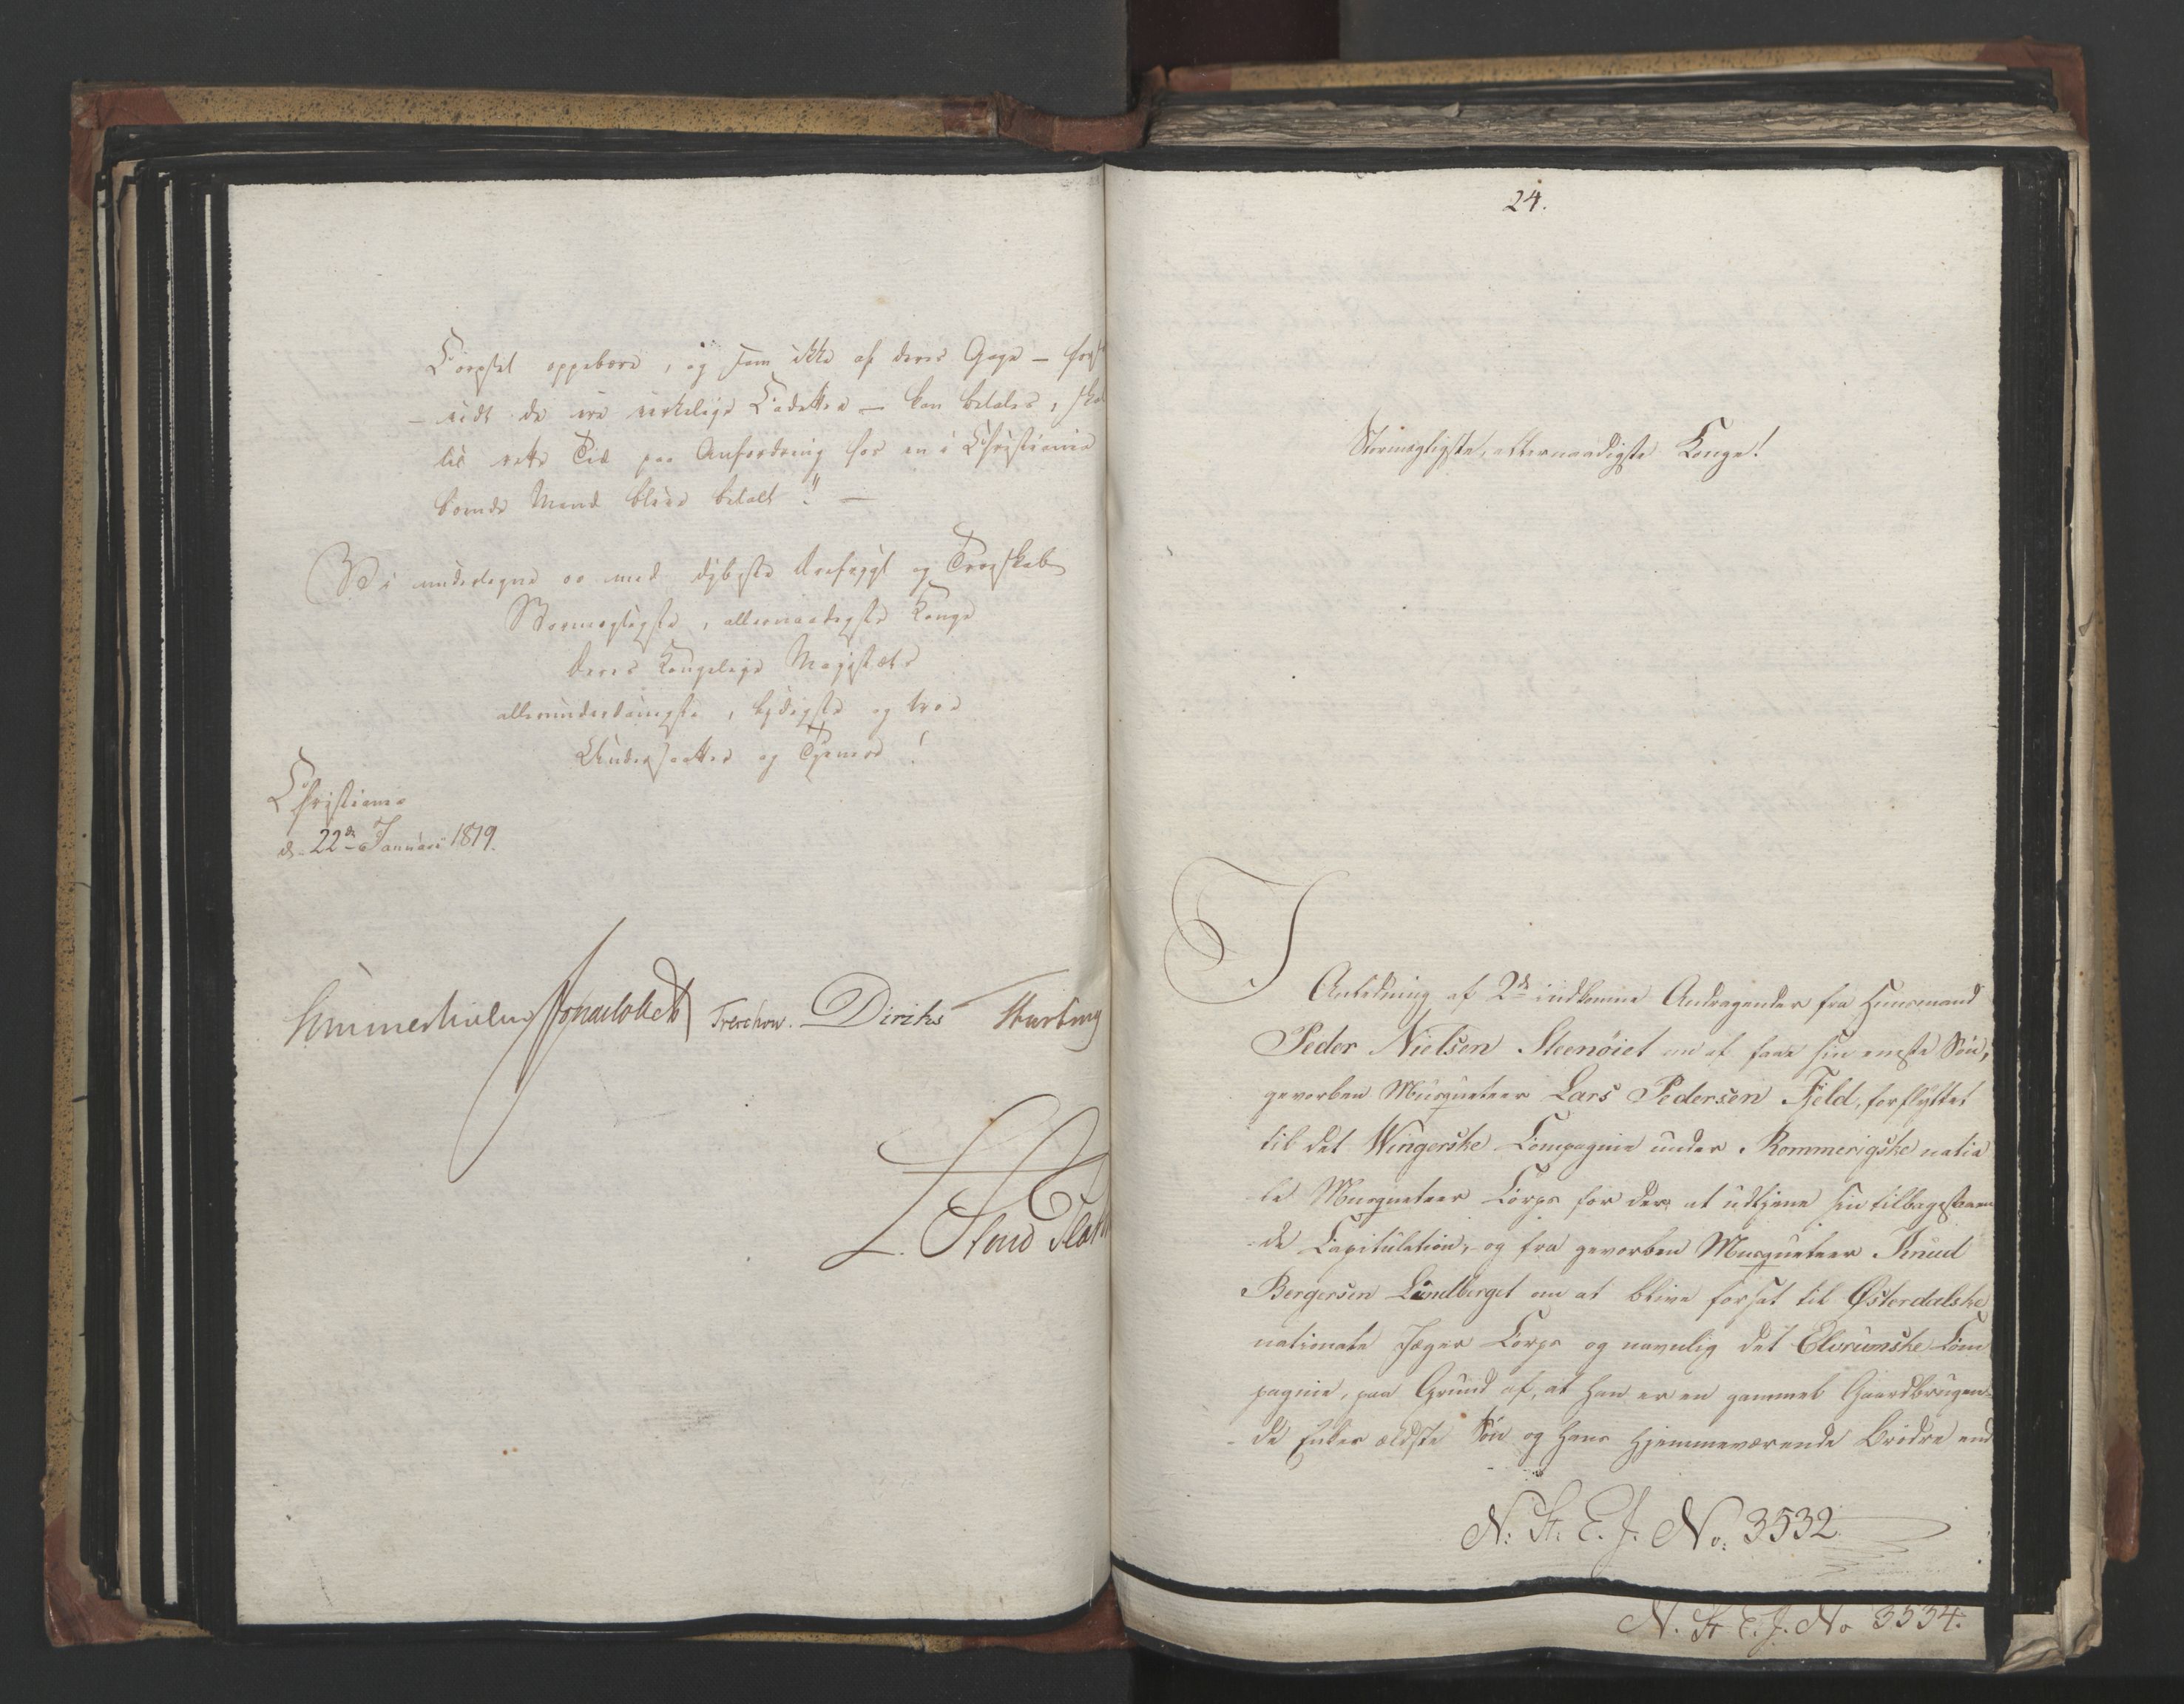 Corpset oppebære, og som ikke af deres Gage – for
- vidt de ere virkelige Cadetter – kan betales, skal
til rette Tid paa Anfordring hos en i Christiania
boende Mand blive betalt!" –
Vi undertegne os med dybeste Ærefrygt og Troeskab
Stormægtigste, allernaadigste Konge
Deres Kongelige Majestæts
allerunderdanigste, lydigste og troe
Undersaatter og Tjenere!
Christiania
d. 22de Januari 1819.
Sommerhielm Treschow. Diriks
L. Stoud Plat
24.
Stormægtigste, allernaadigste Konge!
I
Anledning af 2de indkomne Andragender fra Huusmand
Peder Nielsen Steenøiet om at faae sin eneste Søn,
gevorben Musqueteer Lars Pedersen Fjeld, forflyttet
til det Wingerske Compagnie under Rommerigske natio
le Musqueteer Corps for der at udtjene sin tilbagestaaen
-de Capitulation, og fra gevorben Musqueteer Knud
Bergersen Lundberget om at blive forsat til Østerdalske
nationale Jæger Corps og navnlig det Elvrumske Com
pagnie, paa Grund af, at han er en gammel Gaardbrugen-
-de Enkes ældste Søn og hans hjemmeværende Brødre end
N. St. E. J. No. 3532.
N. St. E. J. No 3534.